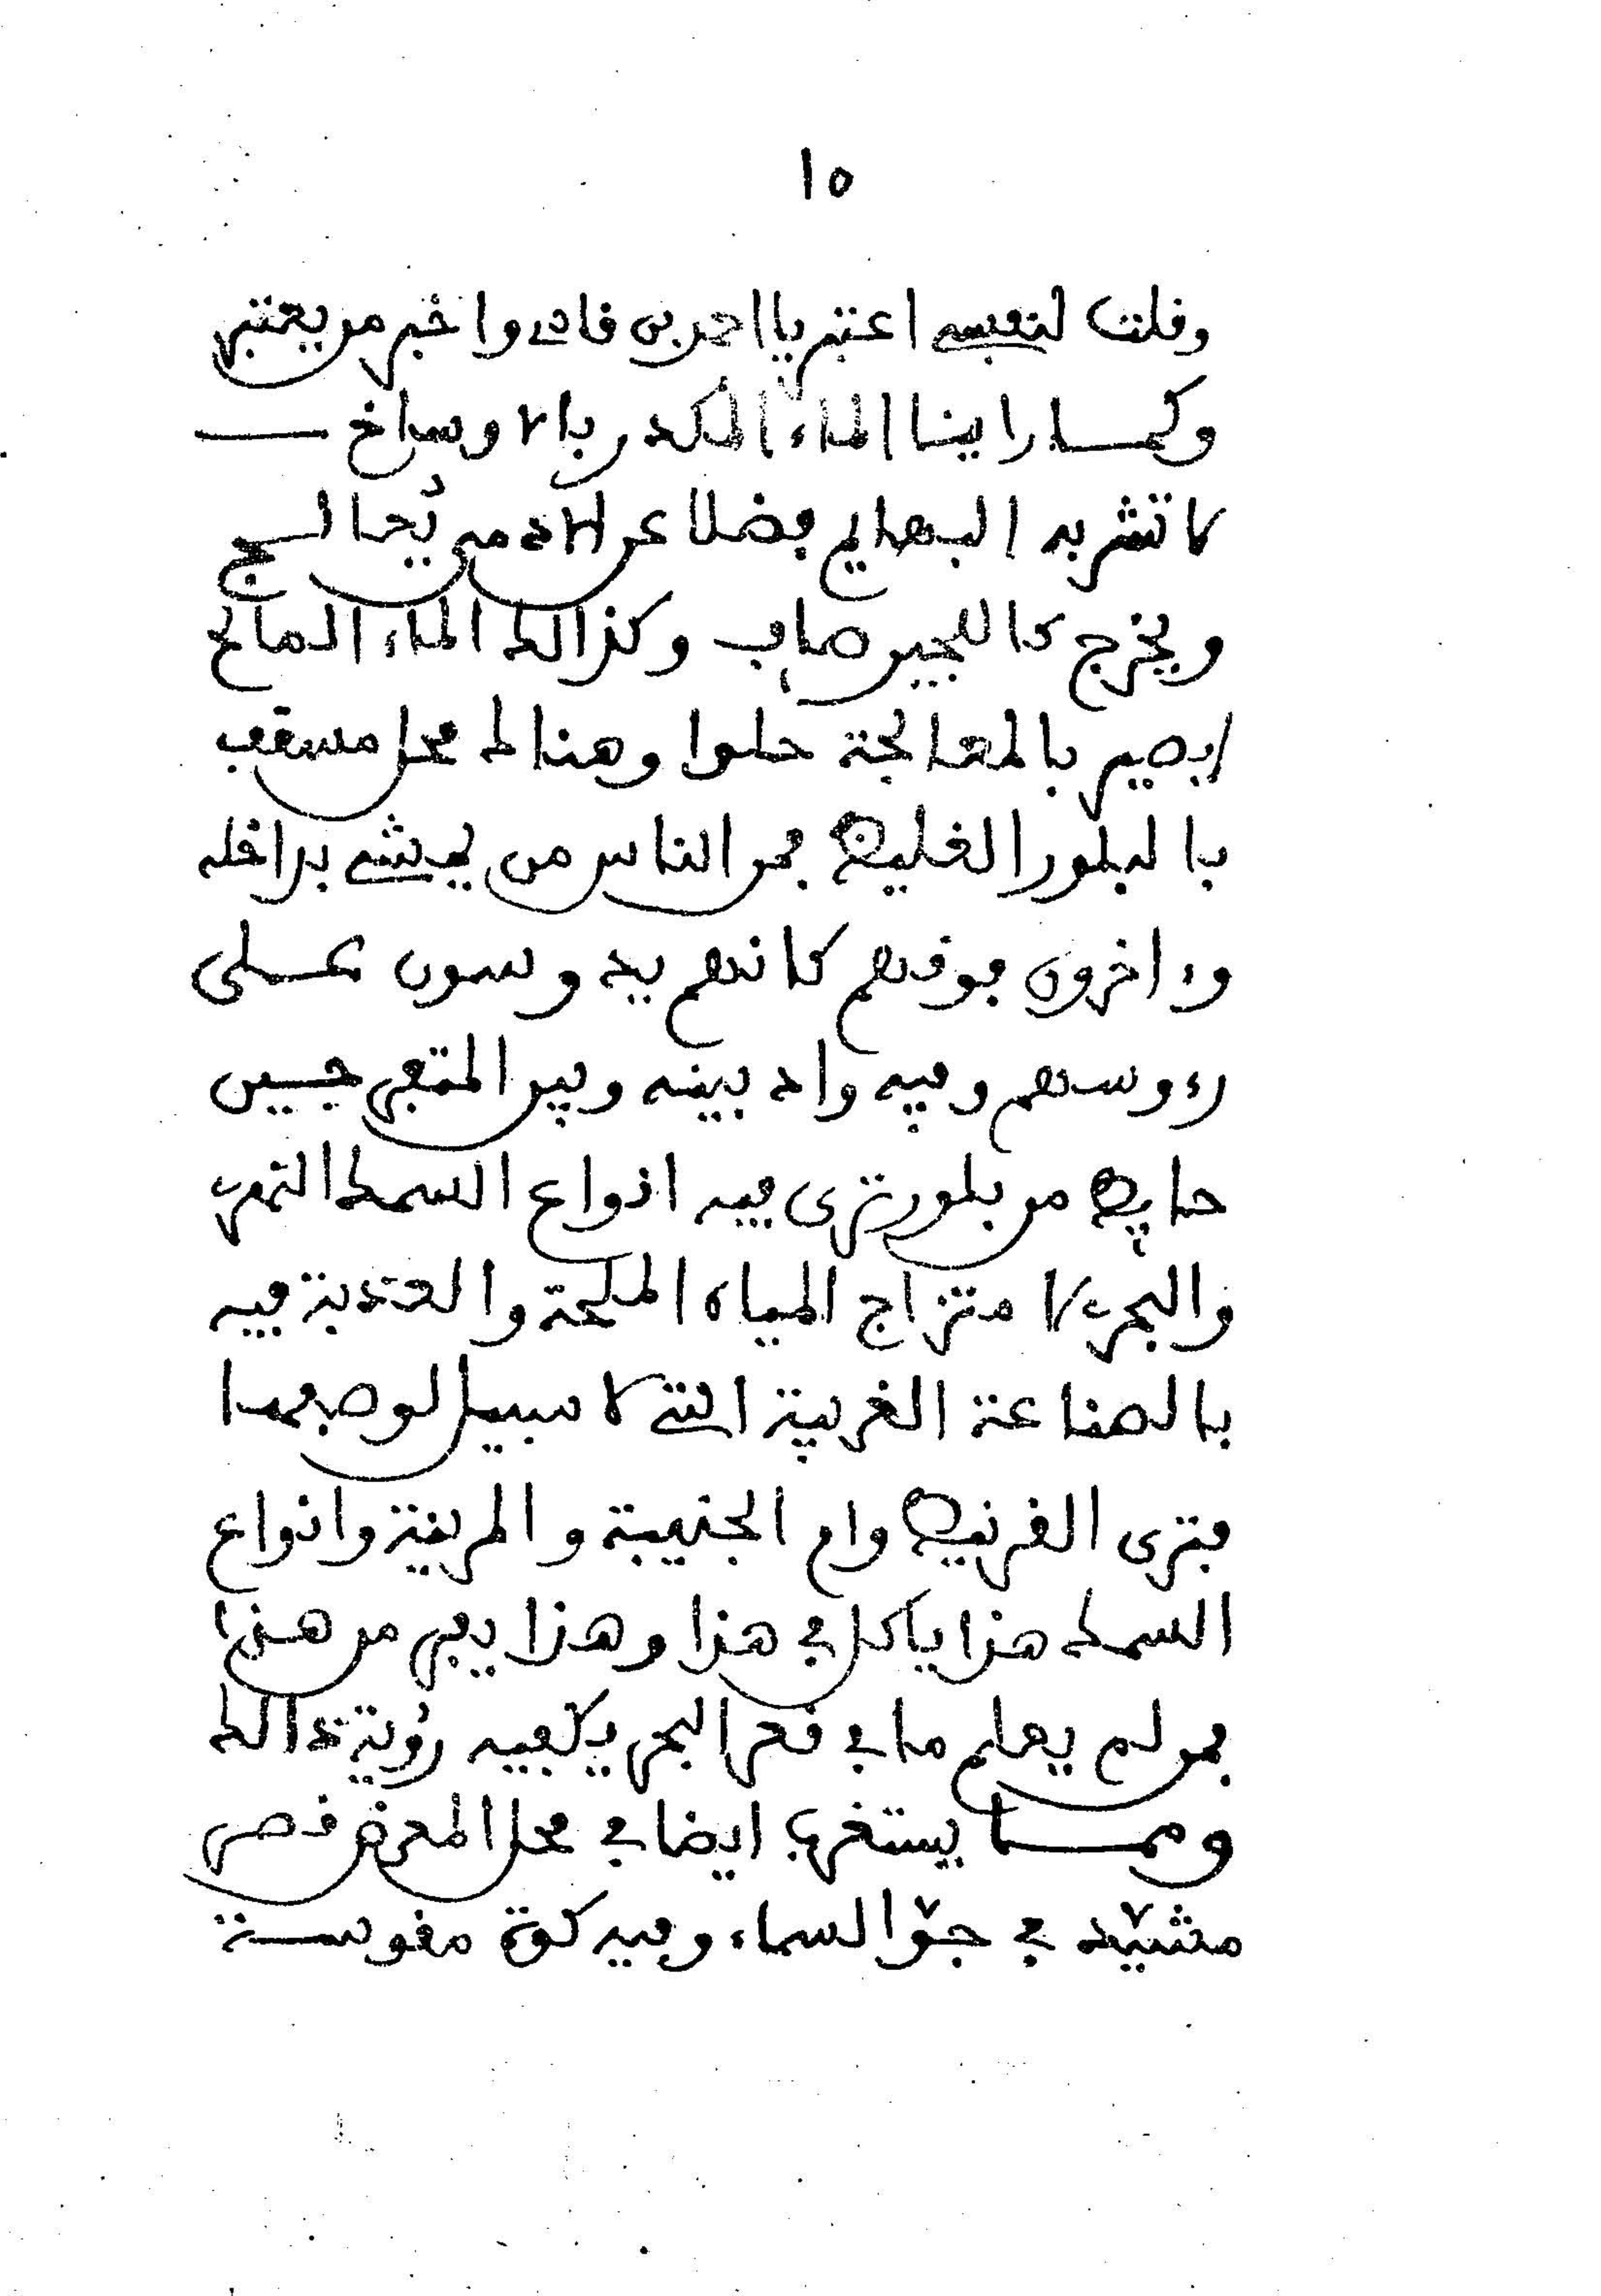 ١٥
وقلت لنفسي اعتبر يا احمد بن قاد واخبر من يعتبر
وكمـا راينا الماء المكدر بالاوساخ
لا تشربه البهايم فضلا عن الادمي يُعالـج
ويخرج كاللجين صاف وكذالك الماء المالح
يصير بالمعالجة حلوا وهنالك محل مسقف
بالبلور الغليظ فمن الناس من يمشي بداخله
وءاخرون فوقهم كانهم يدوسون عـلى
رءوسهم وفيه واد بينه وبين المتفرجيـن
حايط من بلور ترى فيه انواع السمك النهري
والبحري لامتزاج المياه الملحة والعذبة فيه
بالصناعة الغريبة التي لا سبيل لوصفها
فترى القرنيط وام الجنيبة والمرينة وانواع
السمك هذا ياكل في هذا وهذا يفر من هذا
فمن لم يعلم ما في قعر البحر يكفيه رؤية ذالك
وممـا يستغرب ايضا في محل المعرض قصر
مشيّد في جوّ السماء وفيه كوة مقوسـة